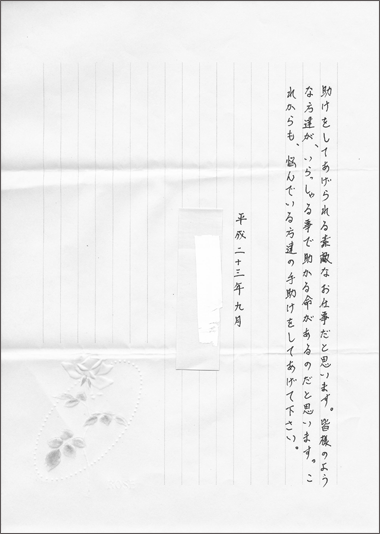 助けをしてあげられる素敵なお仕事だと思います。皆様のよう
な方達が、いらっしゃる事で助かる命があるのだと思います。こ
れからも、悩んでいる方達の手助けをしてあげて下さい。
平成二十三年九月